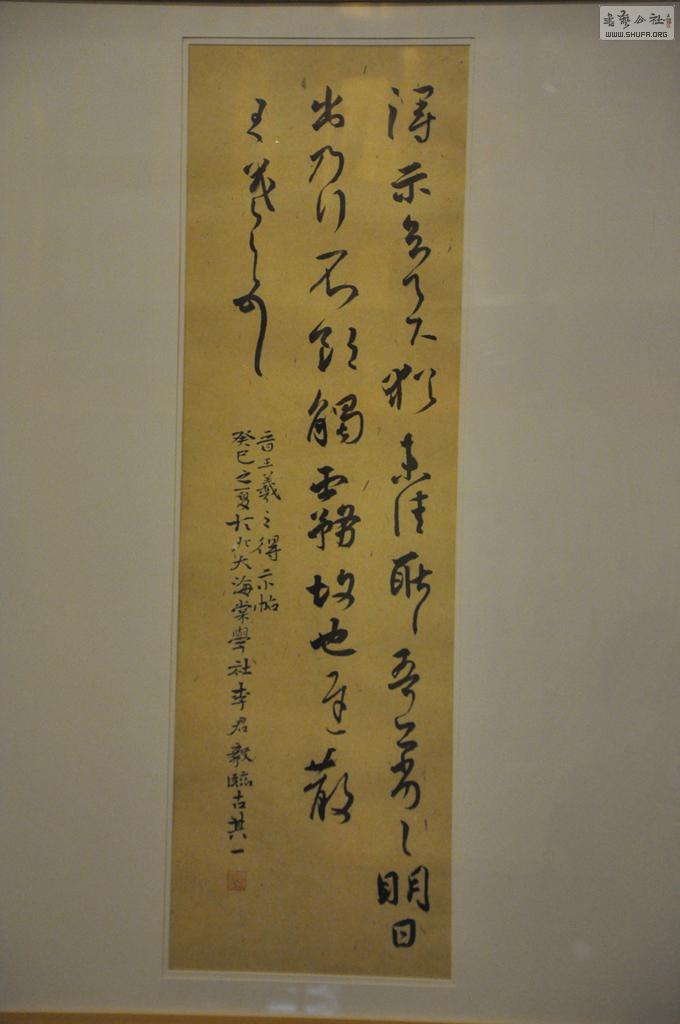 得示知足下猶未佳耿耿吾亦劣劣明日
出乃行不欲觸霧故也遲散
王羲之頓首
晉王羲之得示帖
癸巳之夏於北大海棠學社李君毅臨古其一
書藝公社
WWW.SHUFA.ORG